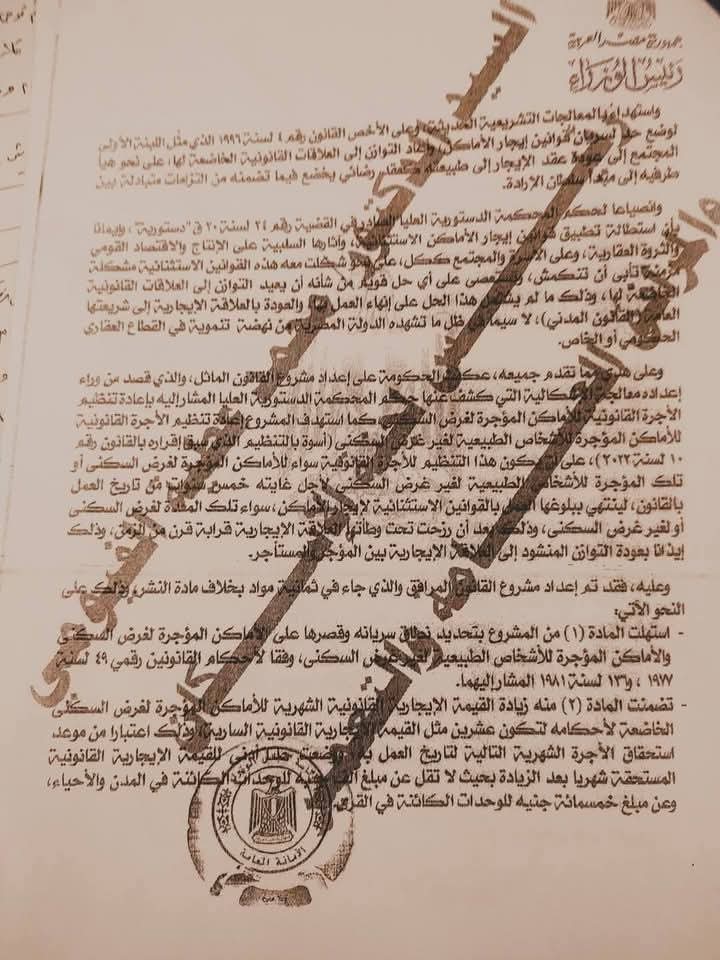 جمهورية مصر العربية
رئيس الوزراء
واستهداء بالمعالجات التشريعية الحديثة، وعلى الأخص القانون رقم ٤ لسنة ١٩٩٦ الذي مثل اللبنة الأولى
لوضع حد لسريان قوانين إيجار الأماكن، وأعاد التوازن إلى العلاقات القانونية الخاضعة لها، على نحو هيأ
المجتمع إلى عودة عقد الإيجار إلى طبيعته كعقد رضائي يخضع فيما تضمنه من التزامات متبادلة بين
طرفيه إلى مبدأ سلطان الإرادة.
وانصياعا لحكم المحكمة الدستورية العليا الصادر في القضية رقم ٢٤ لسنة ٢٠ ق "دستورية"، وإيمانا
بأن استطالة تطبيق قوانين إيجار الأماكن الاستثنائية، وآثارها السلبية على الإنتاج والاقتصاد القومي
والثروة العقارية، وعلى الأسرة والمجتمع ككل، على نحو شكلت معه هذه القوانين الاستثنائية مشكلة
مزمنة تأبى أن تنكمش، وتستعصى على أي حل قويم من شأنه أن يعيد التوازن إلى العلاقات القانونية
الخاضعة لها، وذلك ما لم يشتمل هذا الحل على إنهاء العمل بها، والعودة بالعلاقة الإيجارية إلى شريعتها
العامة (القانون المدني)، لا سيما في ظل ما تشهده الدولة المصرية من نهضة تنموية في القطاع العقاري
الحكومي أو الخاص.
وعلى هدي مما تقدم جميعه، عكفت الحكومة على إعداد مشروع القانون الماثل، والذي قصد من وراء
إعداده معالجة الإشكالية التي كشف عنها حكم المحكمة الدستورية العليا المشار إليه بإعادة تنظيم
الأجرة القانونية للأماكن المؤجرة لغرض السكنى، كما استهدف المشروع إعادة تنظيم الأجرة القانونية
للأماكن المؤجرة للأشخاص الطبيعية لغير غرض السكنى (أسوة بالتنظيم الذي سبق إقراره بالقانون رقم
١٠ لسنة ٢٠٢٢)، على أن يكون هذا التنظيم للأجرة القانونية سواء للأماكن المؤجرة لغرض السكنى أو
تلك المؤجرة للأشخاص الطبيعية لغير غرض السكنى لأجل غايته خمس سنوات من تاريخ العمل
بالقانون، لينتهي ببلوغها العمل بالقوانين الاستثنائية لإيجار الأماكن، سواء تلك المعدة لغرض السكنى
أو لغير غرض السكنى، وذلك بعد أن رزحت تحت وطأتها العلاقة الإيجارية قرابة قرن من الزمن، وذلك
إيذانا بعودة التوازن المنشود إلى العلاقة الإيجارية بين المؤجر والمستأجر.
وعليه، فقد تم إعداد مشروع القانون المرافق والذي جاء في ثمانية مواد بخلاف مادة النشر، وذلك على
النحو الآتي:
- استهلت المادة (١) من المشروع بتحديد نطاق سريانه وقصرها على الأماكن المؤجرة لغرض السكنى
والأماكن المؤجرة للأشخاص الطبيعية لغير غرض السكنى، وفقا لأحكام القانونين رقمي ٤٩ لسنة
١٩٧٧، و١٣٦ لسنة ١٩٨١ المشار إليهما.
- تضمنت المادة (٢) منه زيادة القيمة الإيجارية القانونية الشهرية للأماكن المؤجرة لغرض السكنى
الخاضعة لأحكامه لتكون عشرين مثل القيمة الإيجارية القانونية السارية، وذلك اعتبارا من موعد
استحقاق الأجرة الشهرية التالية لتاريخ العمل به، ووضعت حد أدنى للقيمة الإيجارية القانونية
المستحقة شهريا بعد الزيادة بحيث لا تقل عن مبلغ ألف جنيه للوحدات الكائنة في المدن والأحياء،
وعن مبلغ خمسمائة جنيه للوحدات الكائنة في القرى.
الأمانة العامة